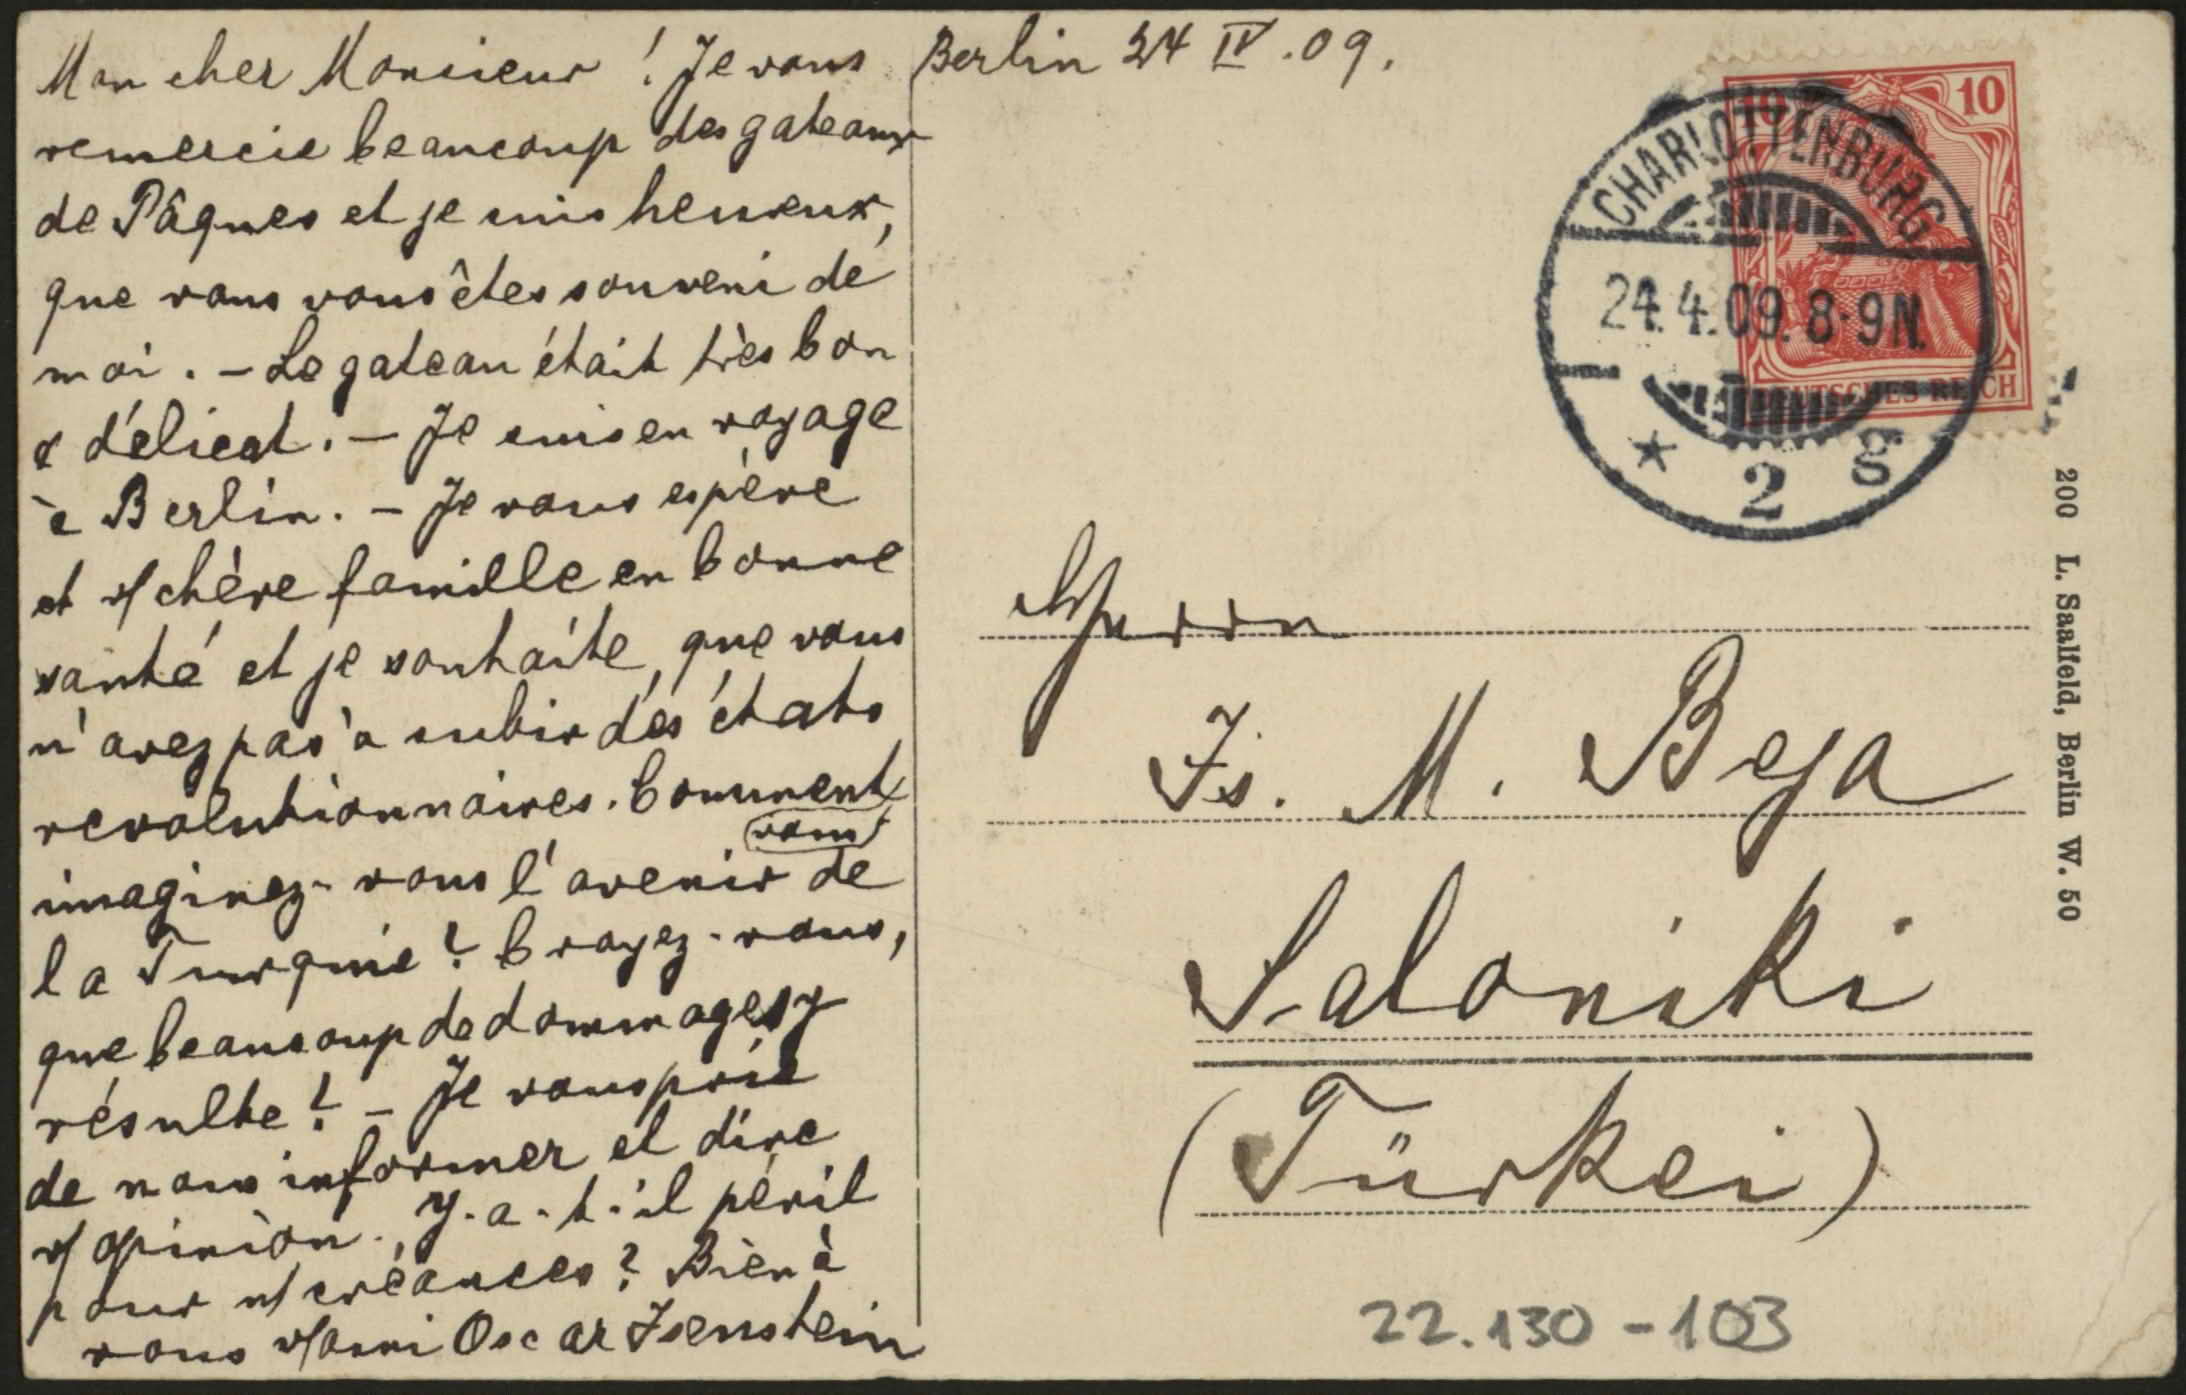 Berlin 24 IV. 09.
Mon cher Monsieur ! Je vous
remercie beaucoup des gateaux
de Pâques et je suis heureux,
que vous vous êtes souveni de
moi. – Le gateau était très bon
& délicat. – Je suis en voyage
à Berlin. – Je vous espère
et v/ chère famille en bonne
santé et je souhaite, que vous
n'avez pas à subir des états
revolutionnaires. Comment
vous
imaginez-vous l'avenir de
la Turquie? Croyez-vous,
que beaucoup de dommages y
résulte? – Je vous prie
de nous informer et dire
v/ opinion. Y-a-t-il péril
pour n/ créances? Bien à
vous v/ami Oscar Isenstein
10 10
DEUTSCHES REICH
CHARLOTTENBURG
24.4.09.8-9N.
* 2 g
Herrn
Is. M. Beja
Saloniki
(Türkei)
200 L. Saalfeld, Berlin W. 50
22.130-103